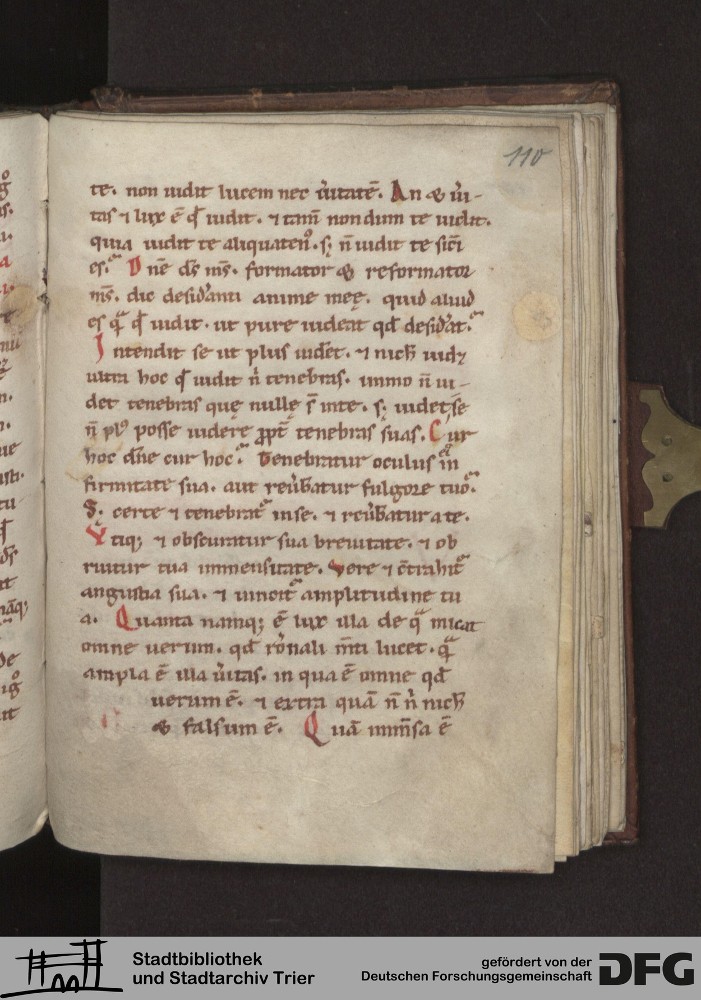 110
te. non uidit lucem nec ūitatē. An & ūi-
tas ⁊ lux ē qđ uidit. ⁊ tam̄ nondum te uidit.
quia uidit te aliquaten᷒. sꝫ n̄ uidit te sicti
es. Dn̄e ds̄ ms̄. formator & reformator
ms̄. dic desid̓anti anime meę. quid aliud
es qͣ̄ qđ uidit. ut pure uideat qđ desid̓at.
Intendit se ut plus uidet. ⁊ nich̄ uidꝫ
ultra hoc qđ uidit n̓ tenebras. immo n̄ ui-
det tenebras quę nullę s̄ inte. sꝫ uidet se
n̄ pl᷒ posse uidere ꝓpt̄ tenebras suas. Cur
hoc dn̄e cur hoc. Tenebratur oculus ei᷒ in
firmitate sua. aut reūbatur fulgore tuo.
Sꝫ certe ⁊ tenebrat᷑ inse. ⁊ reūbatur a te.
Vtiqꝫ ⁊ obscuratur sua breuitate. ⁊ ob
ruitur tua immensitate. Vere ⁊ ct̄rahit᷑
angustia sua. ⁊ uincit᷑ amplitudine tu
a. Quanta namqꝫ ē lux illa de qͣ micat
omne uerum. qđ rōnali m̄ti lucet. qͣ̄
ampla ē illa ūitas. in qua ē omne qđ
uerum ē. ⁊ extra quā n̄ n̓ nich̄
& falsum ē. Quā imm̄sa ē
Stadtbibliothek
und Stadtarchiv Trier
gefördert von der
Deutschen Forschungsgemeinschaft
DFG